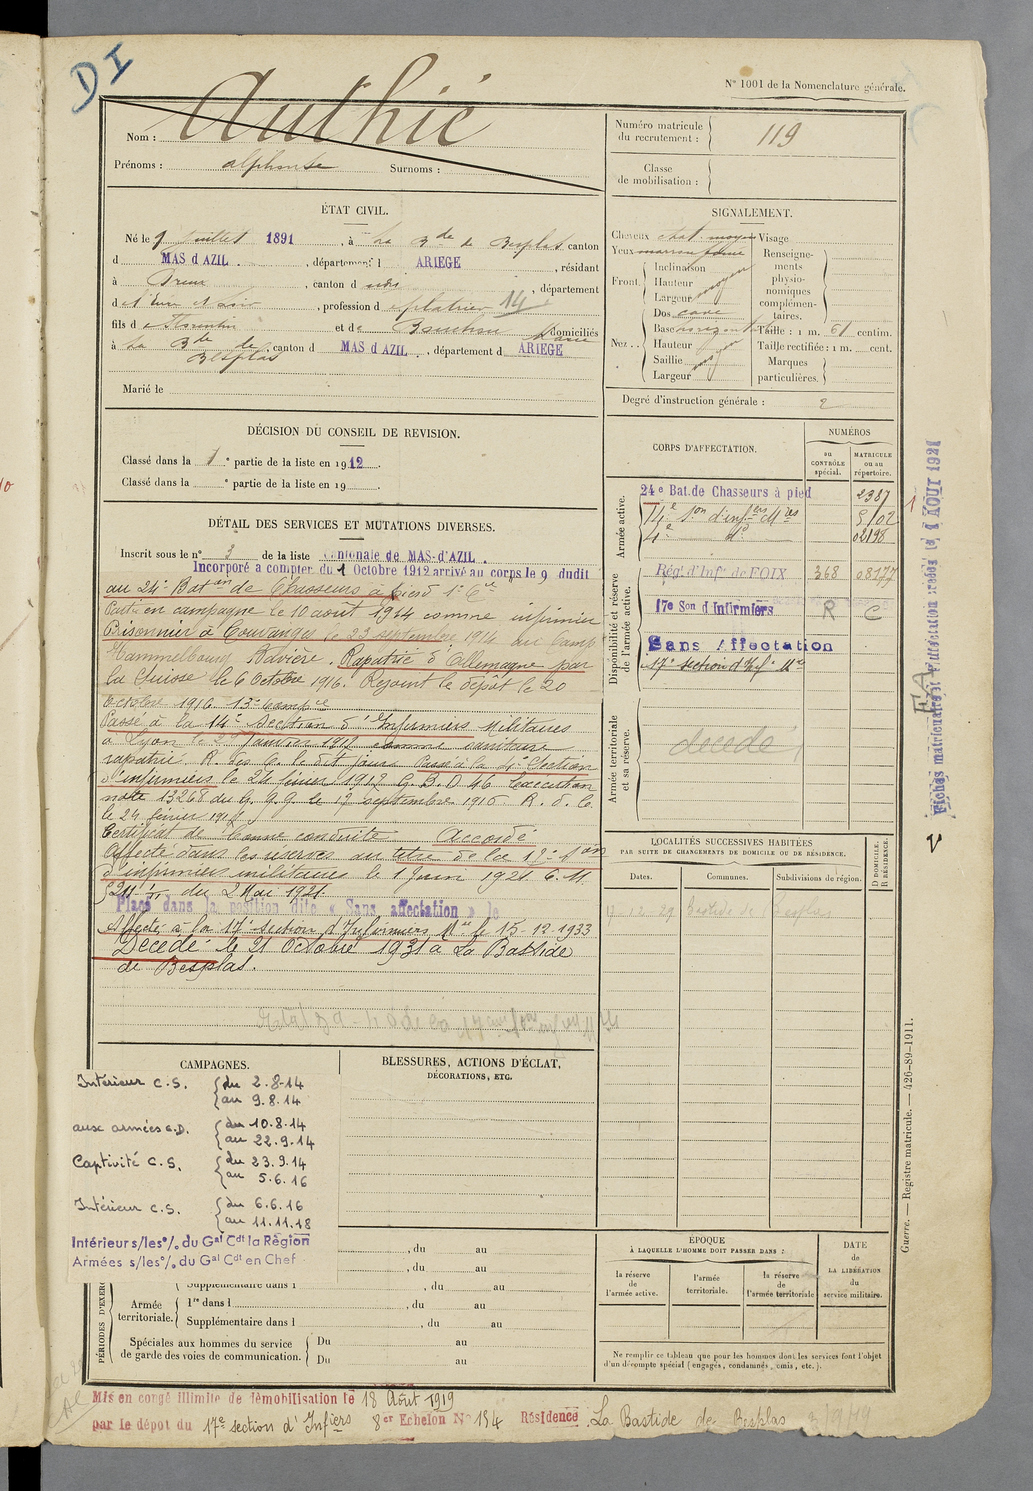 DI
N° 1001 de la Nomenclature générale.
Nom : Authié
Prénoms : alphonse Surnoms :
Numéro matricule du recrutement : 119
Classe de mobilisation :
ÉTAT CIVIL.
Né le 9 juillet 1891, à La Bde de Besplas canton
d MAS d AZIL, département d ARIEGE, résidant
à Dreux, canton d , département
d'Eure et Loir, profession d 14
fils de Florentin et de domiciliés
à La Bde de Besplas, canton d MAS d AZIL, département d ARIEGE
Marié le
SIGNALEMENT.
Cheveux chat. moyen Visage
Yeux
Front. Inclinaison
Hauteur moyen
Largeur
Nez. Dos cave
Base horizont
Hauteur
Saillie
Largeur
Renseignements physionomiques complémentaires.
Taille : 1 m. 61 centim.
Taille rectifiée : 1 m. cent.
Marques particulières.
Degré d'instruction générale : 2
DÉCISION DU CONSEIL DE REVISION.
Classé dans la 1e partie de la liste en 1912.
Classé dans la e partie de la liste en 19 .
CORPS D'AFFECTATION.
NUMÉROS
au CONTRÔLE spécial.
MATRICULE ou au répertoire.
Armée active.
24e Bat. de Chasseurs à pied 2387
14e Son d'infers Mres 5102
4e do 02198
Disponibilité et réserve de l'armée active.
Régt d'Infie de FOIX 368 08177
17e Son d Infirmiers R C
Sans Affectation
17e section d'Inf. Mre
Armée territoriale et sa réserve.
décédé
DÉTAIL DES SERVICES ET MUTATIONS DIVERSES.
Inscrit sous le n° 3 de la liste cantonale de MAS-d'AZIL.
Incorporé à compter du 1 Octobre 1912 arrivé au corps le 9 dudit
au 24e Baton de Chasseurs à pied 1e Cl
Parti en campagne le 10 août 1914 comme infirmier
Prisonnier à Couvanges le 23 septembre 1914 au camp
Hammelbourg Bavière. Rapatrié d'Allemagne par
la Suisse le 6 Octobre 1916. Rejoint le dépôt le 20
Octobre 1916 13e Compie
Passé à la 14e Section d'Infirmiers Militaires
à Lyon le 2 Janvier 1917 comme sanitaire
rapatrié R. des C. le dit jour. Passé à la 4e Section
d'infirmiers le 24 février 1917 G.B.D 46 Exécution
note 13268 du G. Q. G. le 17 septembre 1916 R. d. C.
le 24 février 1917
Certificat de bonne conduite Accordé
Affecté dans les réserves au titre de la 17e Son
d'infirmiers militaires le 1 Juin 1921. C. M.
du 2 Mai 1921.
Placé dans la position dite « Sans affectation » le
Affecté à la 17e section d'Infirmiers Mre le 15-12-1933
Décédé le 21 Octobre 1931 à La Bastide
de Besplas.
LOCALITÉS SUCCESSIVES HABITÉES
PAR SUITE DE CHANGEMENTS DE DOMICILE OU DE RÉSIDENCE.
D DOMICILE. R RÉSIDENCE.
Dates. Communes. Subdivisions de région.
12.29 Bastide de Besplas
CAMPAGNES.
Intérieur C.S. du 2.8.14
au 9.8.14
aux armées C.D. du 10.8.14
au 22.9.14
Captivité C.S. du 23.9.14
au 5.6.16
Intérieur C.S. du 6.6.16
au 11.11.18
Intérieur s/les °/. du Gal Cdt la Région
Armées s/les °/. du Gal Cdt en Chef
BLESSURES, ACTIONS D'ÉCLAT,
DÉCORATIONS, ETC.
, du au
, du au
PÉRIODES D'EXERC
Supplémentaire dans l , du au
Armée territoriale. 1re dans l , du au
Supplémentaire dans l , du au
Spéciales aux hommes du service de garde des voies de communication. Du au
Du au
ÉPOQUE
À LAQUELLE L'HOMME DOIT PASSER DANS :
la réserve de l'armée active.
l'armée territoriale.
la réserve de l'armée territoriale
DATE de LA LIBÉRATION du service militaire.
Ne remplir ce tableau que pour les hommes dont les services font l'objet
d'un décompte spécial (engagés, condamnés, omis, etc.).
Guerre. — Registre matricule. — 426-89-1911.
Mis en congé illimité de démobilisation le 18 Août 1919
par le dépôt du 17e section d'Infiers 8e Echelon N° 154 Résidence La Bastide de Besplas